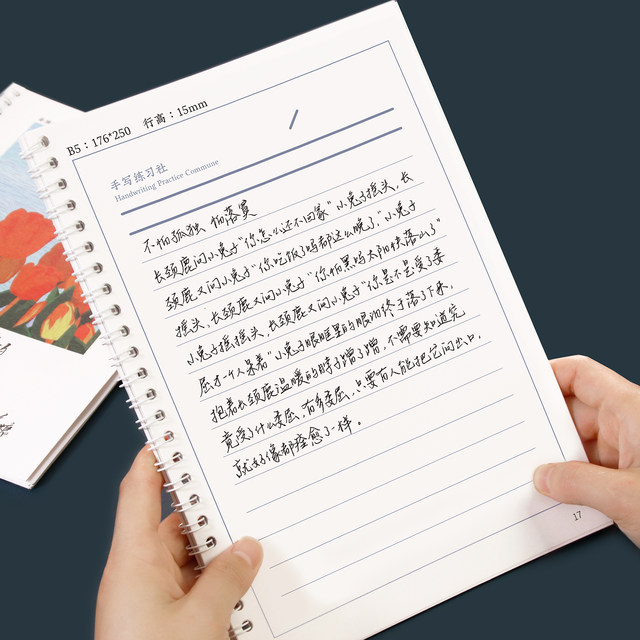 B5：176*250 行高：15mm
手写练习社
Handwriting Practice Commune
不怕孤独 怕落寞
长颈鹿问小兔子“你怎么还不回家”小兔子摇头，长
颈鹿又问小兔子“你吃饭了吗都这么晚了，”小兔子
摇头，长颈鹿又问小兔子“你怕黑吗太阳快落山了”
小兔子摇摇头，长颈鹿又问小兔子“你是不是受了委
屈才一个人呆着”小兔子眼眶里的眼泪终于落了下来，
抱着长颈鹿温暖的脖子蹭了蹭，不需要知道究
竟受了什么委屈，有多委屈，只要有人能把它问出口，
就好像都痊愈了一样。
17